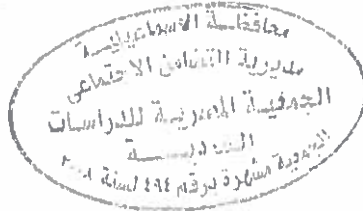 محافظة الاسماعيلية
مديرية التضامن الاجتماعى
الجمعية المصرية للدراسات
مشهرة برقم ٤٩٤ لسنة